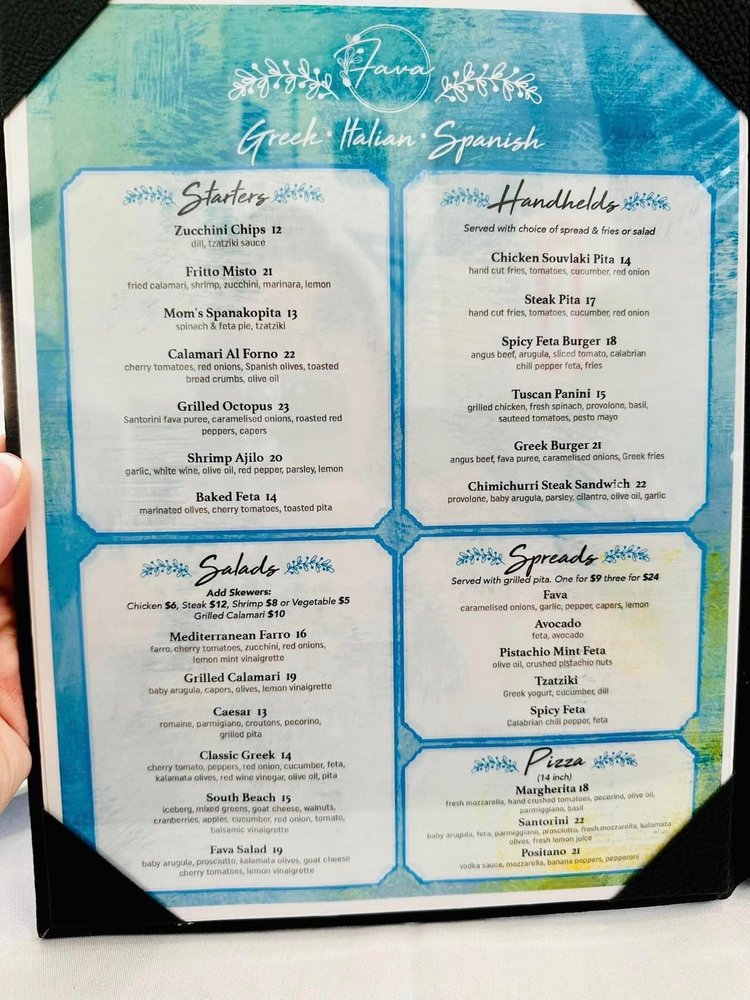 Fava
Greek • Italian • Spanish
Starters
Zucchini Chips 12
dill, tzatziki sauce
Fritto Misto 21
fried calamari, shrimp, zucchini, marinara, lemon
Mom's Spanakopita 13
spinach & feta pie, tzatziki
Calamari Al Forno 22
cherry tomatoes, red onions, Spanish olives, toasted
bread crumbs, olive oil
Grilled Octopus 23
Santorini fava puree, caramelised onions, roasted red
peppers, capers
Shrimp Ajilo 20
garlic, white wine, olive oil, red pepper, parsley, lemon
Baked Feta 14
marinated olives, cherry tomatoes, toasted pita
Handhelds
Served with choice of spread & fries or salad
Chicken Souvlaki Pita 14
hand cut fries, tomatoes, cucumber, red onion
Steak Pita 17
hand cut fries, tomatoes, cucumber, red onion
Spicy Feta Burger 18
angus beef, arugula, sliced tomato, calabrian
chili pepper feta, fries
Tuscan Panini 15
grilled chicken, fresh spinach, provolone, basil,
sauteed tomatoes, pesto mayo
Greek Burger 21
angus beef, fava puree, caramelised onions, Greek fries
Chimichurri Steak Sandwich 22
provolone, baby arugula, parsley, cilantro, olive oil, garlic
Salads
Add Skewers:
Chicken $6, Steak $12, Shrimp $8 or Vegetable $5
Grilled Calamari $10
Mediterranean Farro 16
farro, cherry tomatoes, zucchini, red onions,
lemon mint vinaigrette
Grilled Calamari 19
baby arugula, capers, olives, lemon vinaigrette
Caesar 13
romaine, parmigiano, croutons, pecorino,
grilled pita
Classic Greek 14
cherry tomato, peppers, red onion, cucumber, feta,
kalamata olives, red wine vinegar, olive oil, pita
South Beach 15
iceberg, mixed greens, goat cheese, walnuts,
cranberries, apples, cucumber, red onion, tomato,
balsamic vinaigrette
Fava Salad 19
baby arugula, prosciutto, kalamata olives, goat cheese
cherry tomatoes, lemon vinaigrette
Spreads
Served with grilled pita. One for $9 three for $24
Fava
caramelised onions, garlic, pepper, capers, lemon
Avocado
feta, avocado
Pistachio Mint Feta
olive oil, crushed pistachio nuts
Tzatziki
Greek yogurt, cucumber, dill
Spicy Feta
Calabrian chili pepper, feta
Pizza
(14 inch)
Margherita 18
fresh mozzarella, hand crushed tomatoes, pecorino, olive oil,
parmiggiano, basil
Santorini 22
baby arugula, feta, parmiggiano, prosciutto, fresh mozzarella, kalamata
olives, fresh lemon juice
Positano 21
vodka sauce, mozzarella, banana peppers, pepperoni